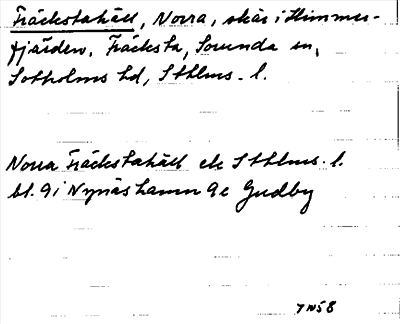 Fräckstahäll, Norra, skär i Himmer-
fjärden, Fräcksta, Sorunda sn,
Sotholms hd, Sthlms. l.
Norra Fräckstahäll ek Sthlms. l.
bl. 9 i Nynäshamn 9c Gudby
7 N58